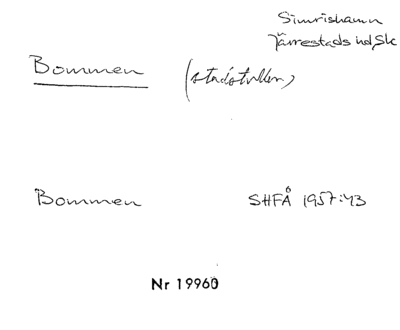 Simrishamn
Järrestads hd Sk
Bommen (stadstullen)
Bommen SHFÅ 1957:43
Nr 19960